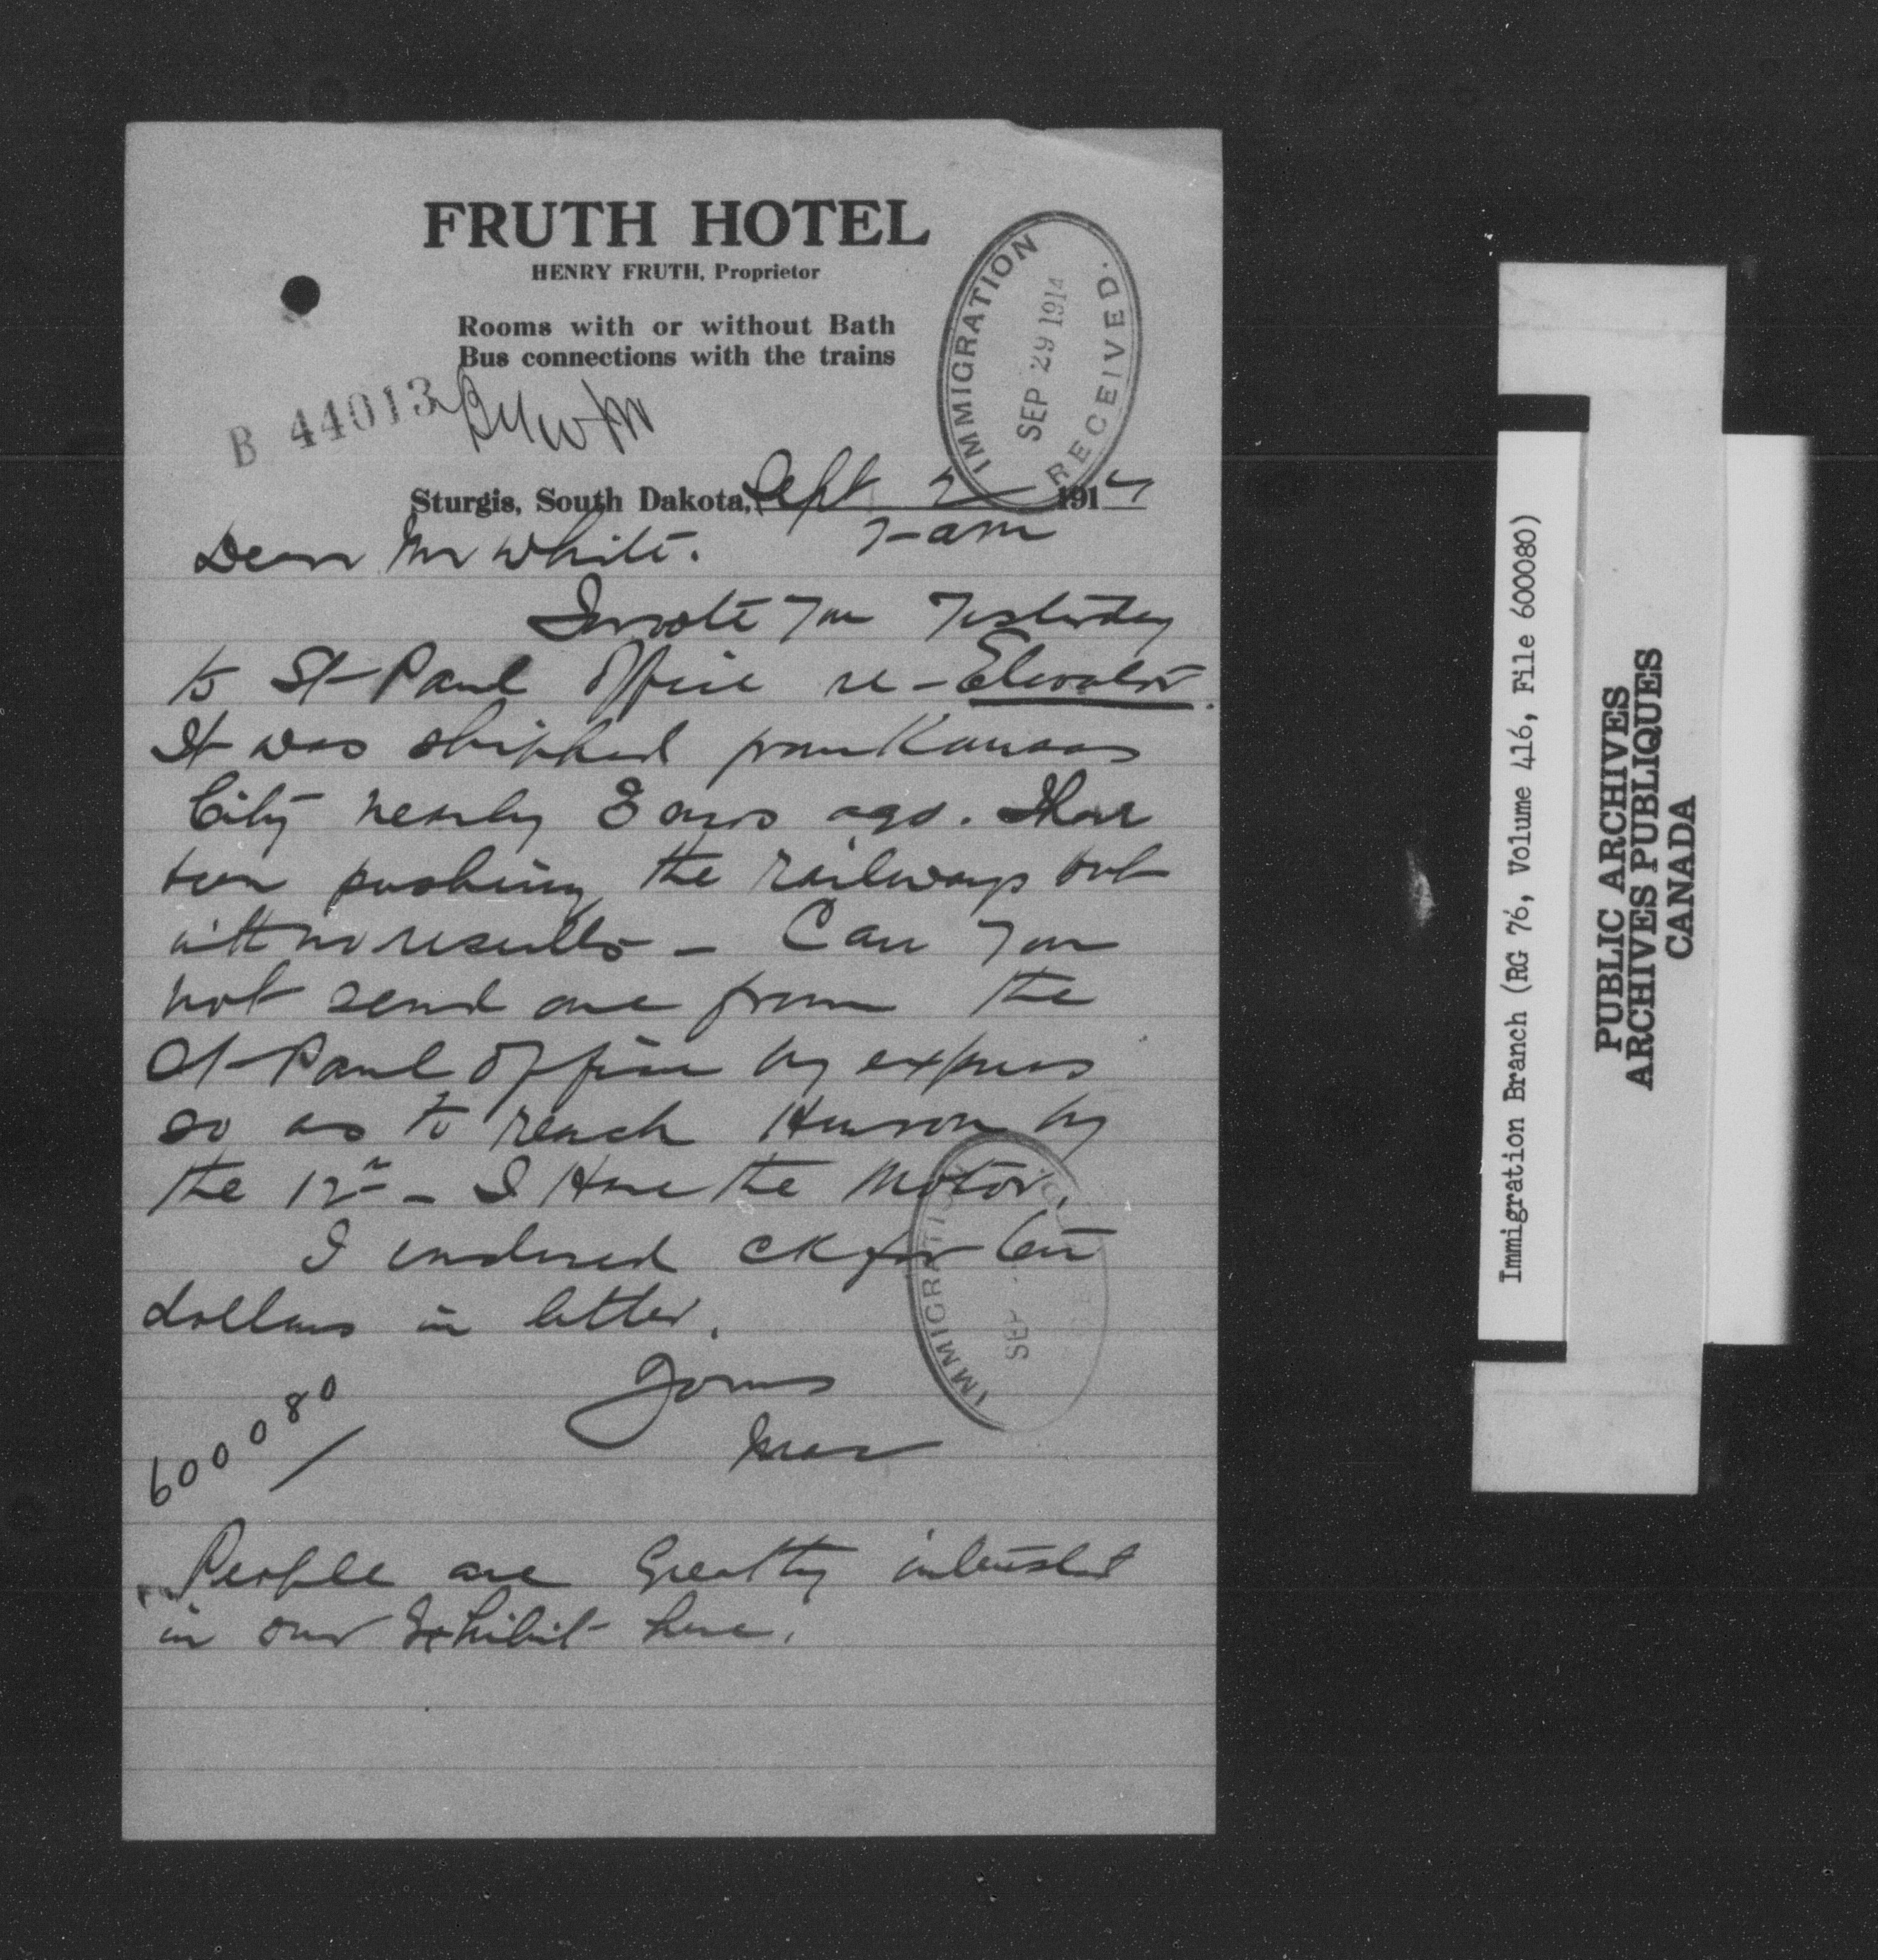 FRUTH HOTEL
HENRY FRUTH, Proprietor
Rooms with or without Bath
Bus connections with the trains
IMMIGRATION
SEP 29 1914
RECEIVED.
B 44013
Sturgis, South Dakota, Sept 2 1914
7-am
Dear Mr White.
I wrote you yesterday
to St Paul office re-Elevator.
It was shipped from Kansas
City nearly 3 ago. I have
been pushing the railways but
with no results - Can you
not send one from the
St Paul office by express
so as to reach Huron by
the 12th - I Have the Motor.
I endorsed ck for ten
dollars in letter.
IMMIGRATION
SEP
Yours
600080
People are Greatly interested
in our Exhibit here.
Immigration Branch (RG 76, Volume 416, File 600080)
PUBLIC ARCHIVES
ARCHIVES PUBLIQUES
CANADA